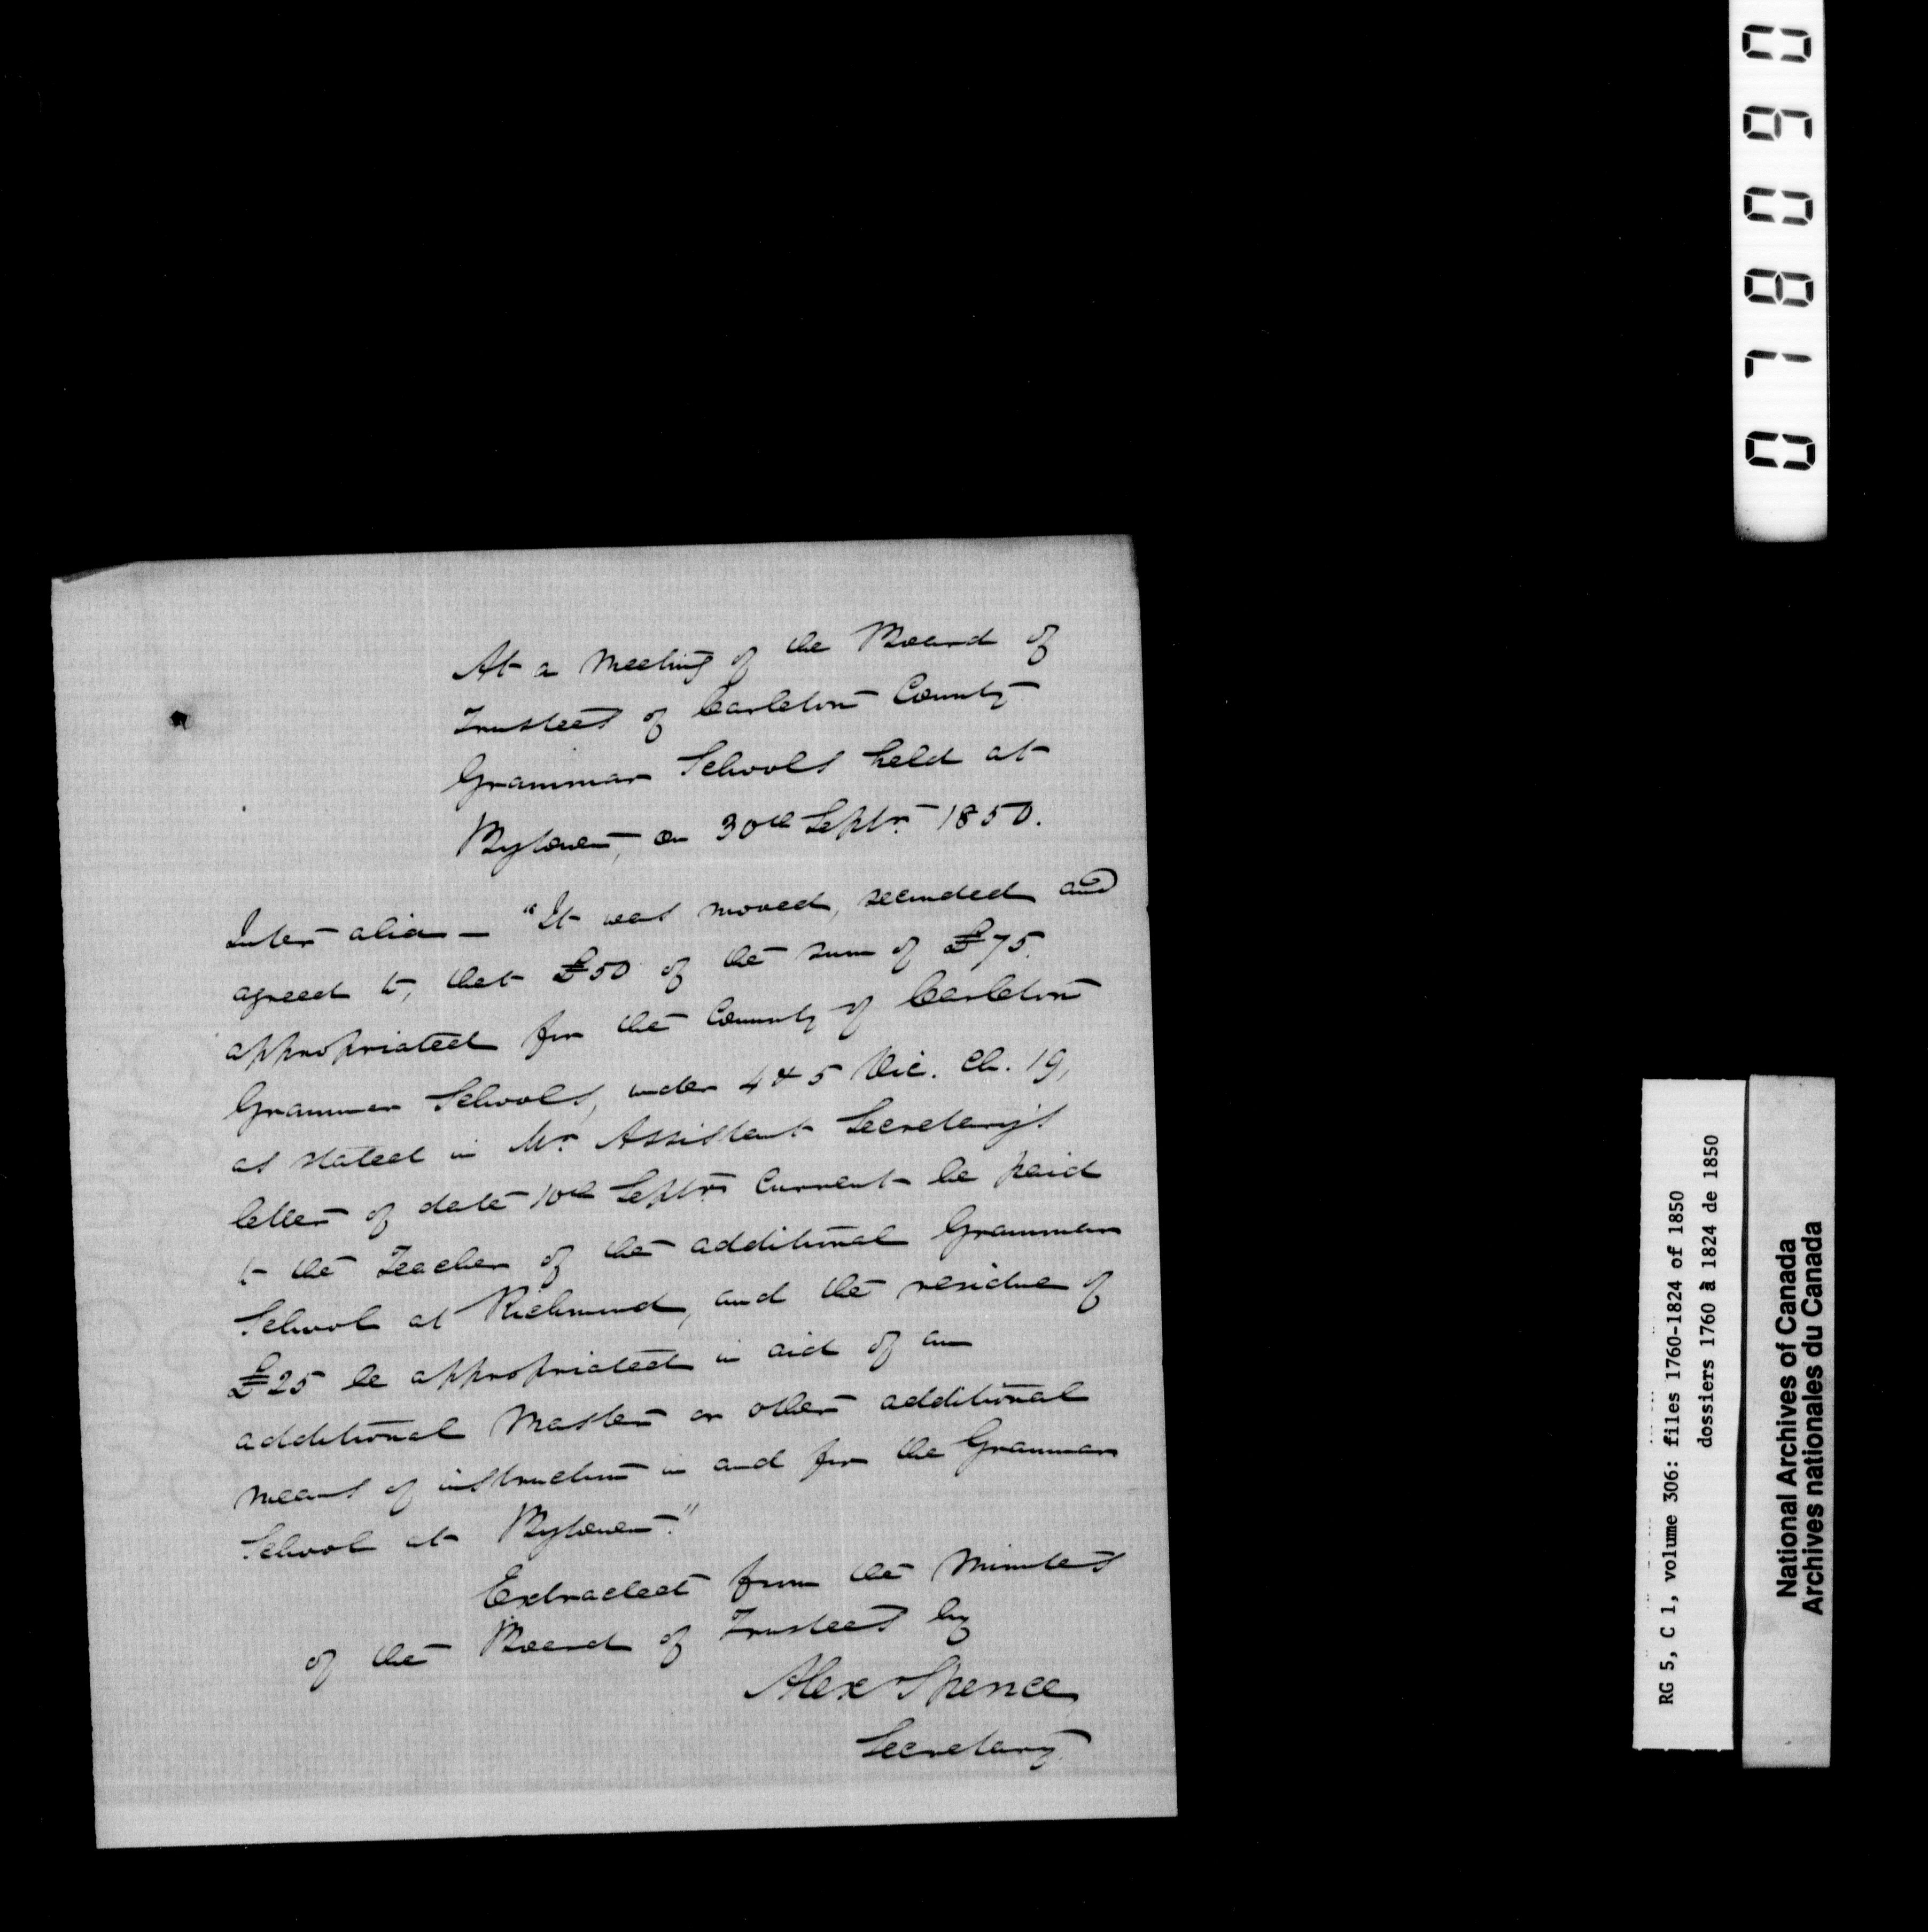 At a Meeting of the Board of
Trustees of Carleton County
Grammar Schools held at
Bytown, on 30th Septr. 1850.
Inter alia — "It was moved, seconded and
agreed to, that £50 of the sum of £75.
appropriated for the County of Carleton
Grammar Schools, under 4 & 5 Vic. Ch. 19,
as stated in Mr. Assistant Secretary's
letter of date 10th Septr. Current be paid
to the Teacher of the additional Grammar
School at Richmond, and the residue of
£25 be appropriated in aid of an
additional Master or other additional
means of instruction in and for the Grammar
School at Bytown."
Extracted from the Minutes
of the Board of Trustees by
Alex Spence,
Secretary.
RG 5, C 1, volume 306: files 1760-1824 of 1850
dossiers 1760 à 1824 de 1850
National Archives of Canada
Archives nationales du Canada